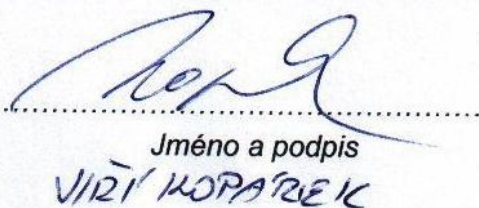 Jméno a podpis
JIŘÍ KOPÁREK